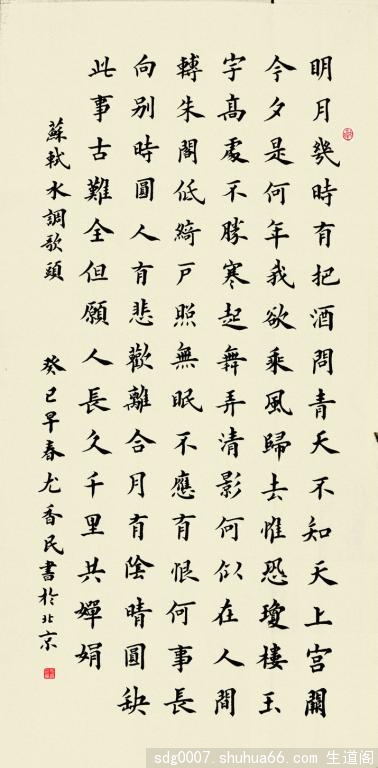 明月幾時有把酒問青天不知天上宮闕
今夕是何年我欲乘風歸去惟恐瓊樓玉
宇高處不勝寒起舞弄清影何似在人間
轉朱閣低綺戶照無眠不應有恨何事長
向别時圓人有悲歡離合月有陰晴圓缺
此事古難全但願人長久千里共嬋娟
蘇軾水調歌頭 癸巳早春尤香民書於北京
sdg0007.shuhua66.com 生道阁